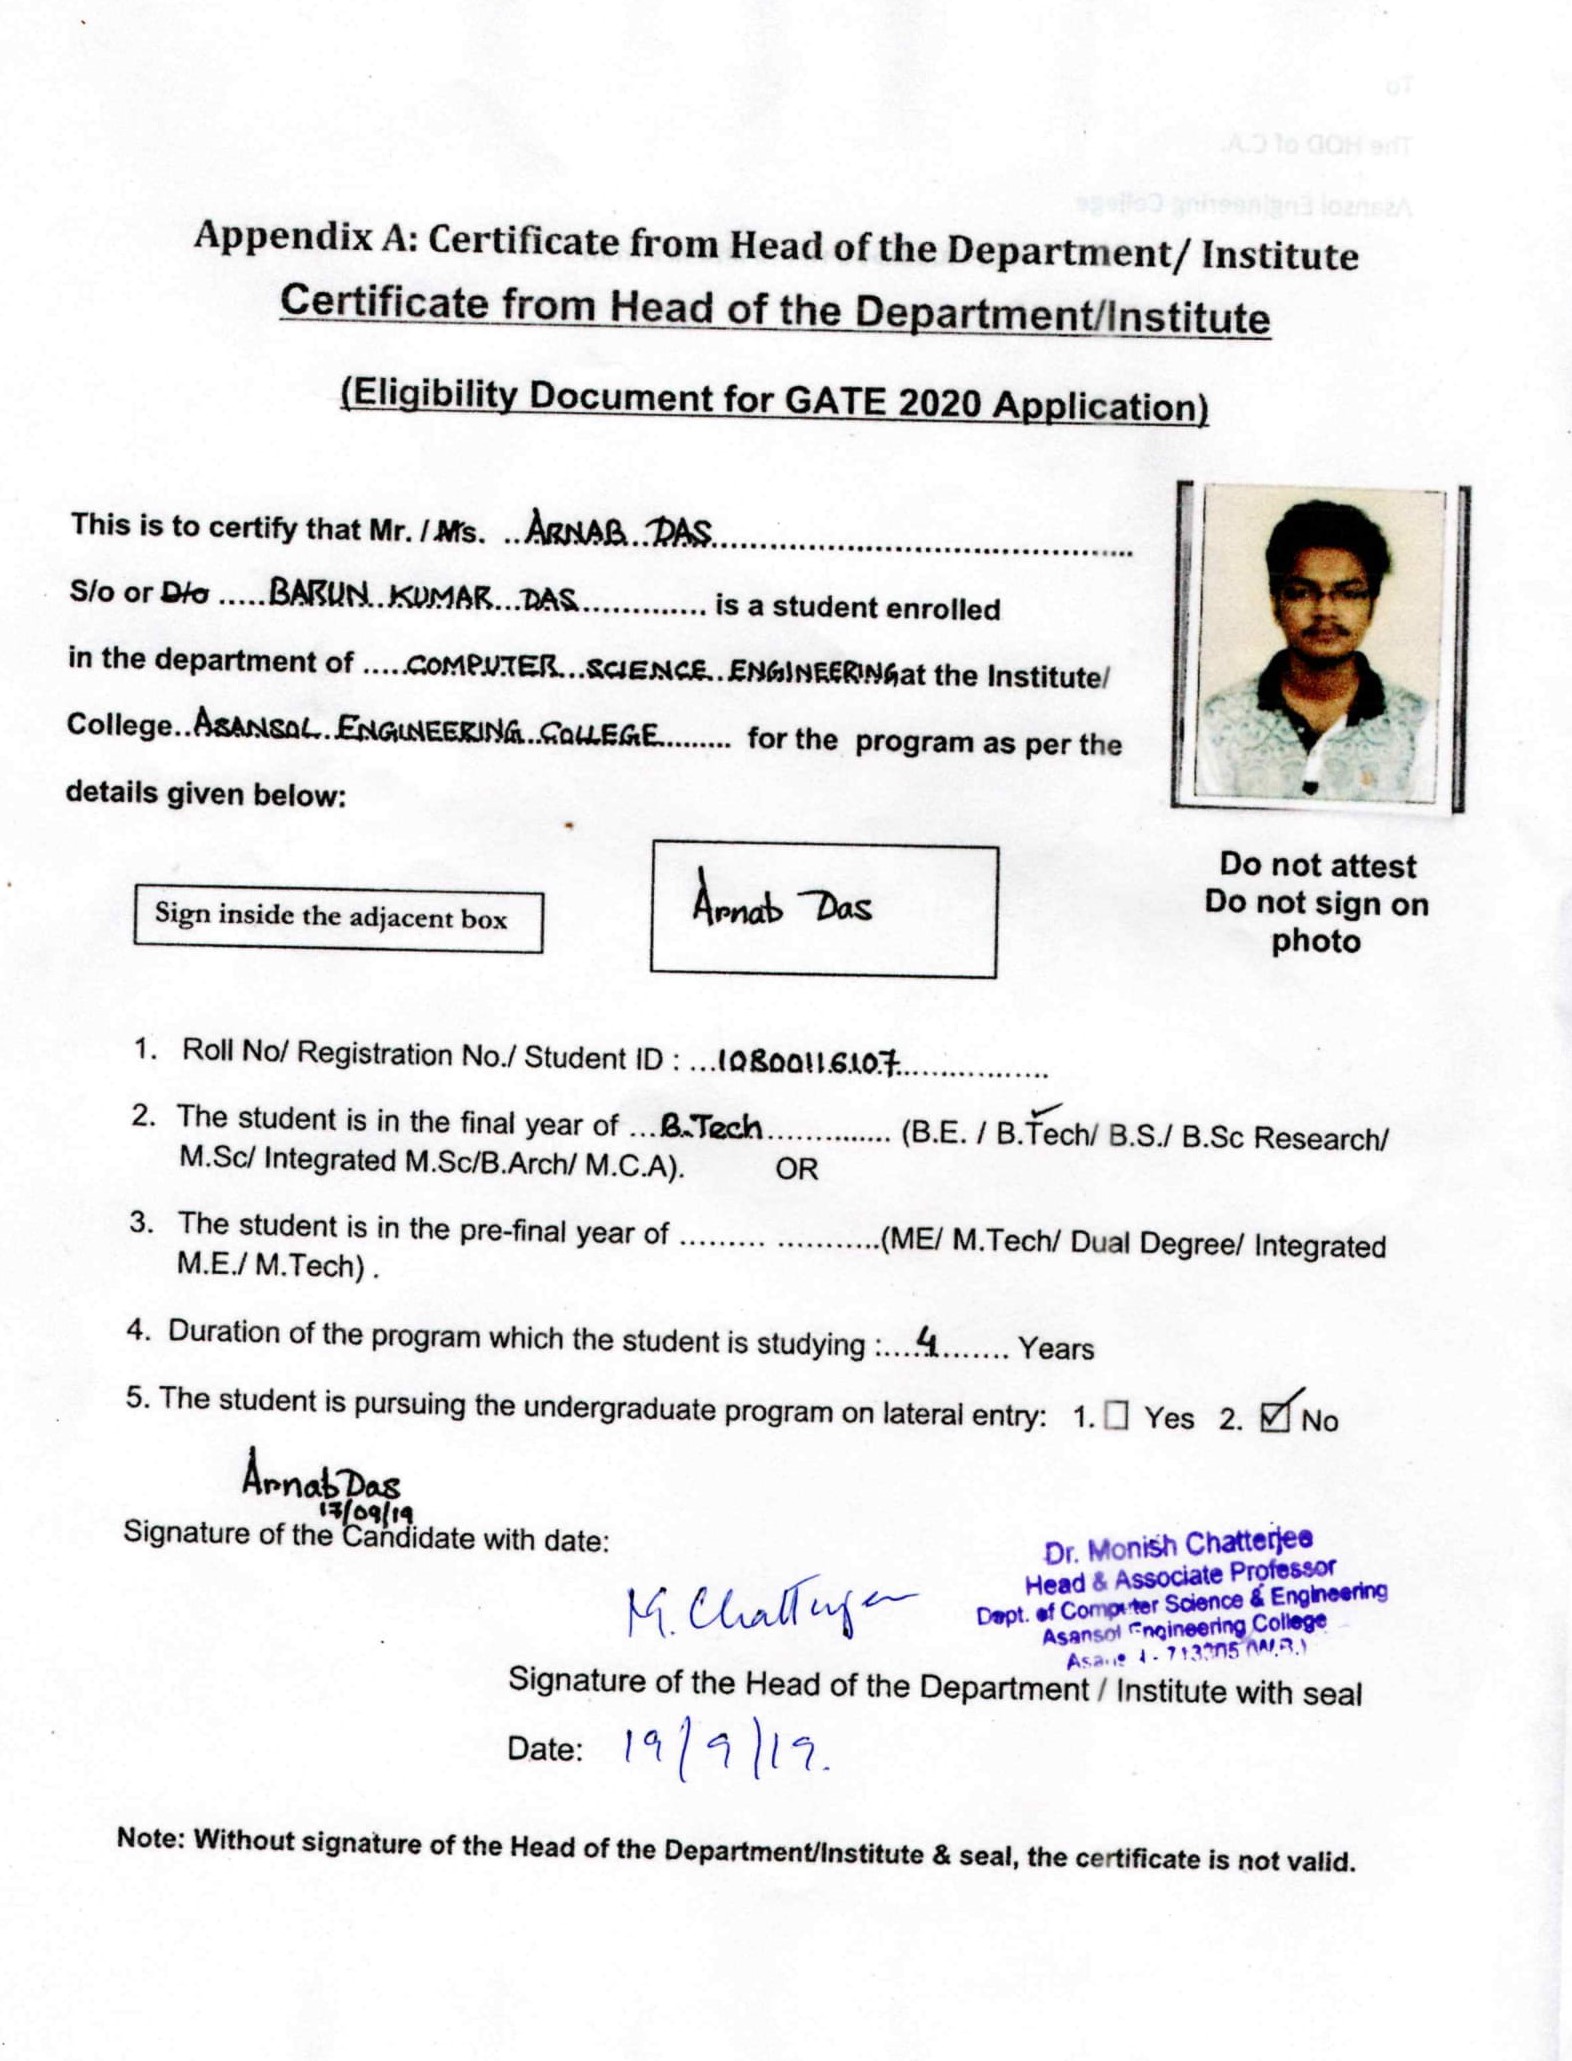 To
The HOD of C.A.
Asansol Engineering College
Appendix A: Certificate from Head of the Department/ Institute
Certificate from Head of the Department/Institute
(Eligibility Document for GATE 2020 Application)
This is to certify that Mr. / Ms. ..ARNAB...DAS..............................................................
S/o or D/o .....BARUN..KUMAR...DAS............. is a student enrolled
in the department of .....COMPUTER...SCIENCE..ENGINEERING at the Institute/
College..ASANSOL..ENGINEERING..COLLEGE......... for the program as per the
details given below:
Sign inside the adjacent box
Arnab Das
Do not attest
Do not sign on
photo
1. Roll No/ Registration No./ Student ID : ...10800116107..................
2. The student is in the final year of ...B.Tech.............. (B.E. / B.Tech/ B.S./ B.Sc Research/
M.Sc/ Integrated M.Sc/B.Arch/ M.C.A). OR
3. The student is in the pre-final year of ......... ...........(ME/ M.Tech/ Dual Degree/ Integrated
M.E./ M.Tech) .
4. Duration of the program which the student is studying :.....4........ Years
5. The student is pursuing the undergraduate program on lateral entry: 1. ☐ Yes 2. ☑ No
Arnab Das
17/09/19
Signature of the Candidate with date:
M. Chatterjee
Dr. Monish Chatterjee
Head & Associate Professor
Dept. of Computer Science & Engineering
Asansol Engineering College
713305 (W.B.)
Signature of the Head of the Department / Institute with seal
Date: 19/9/19.
Note: Without signature of the Head of the Department/Institute & seal, the certificate is not valid.